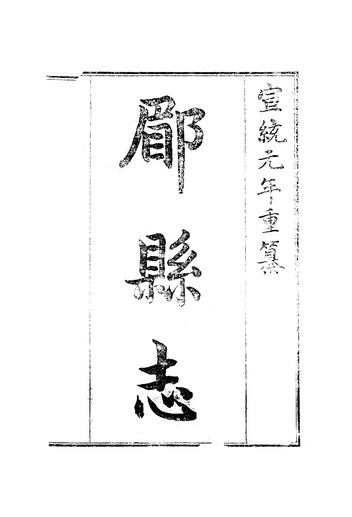 宣統元年重纂
郿縣志